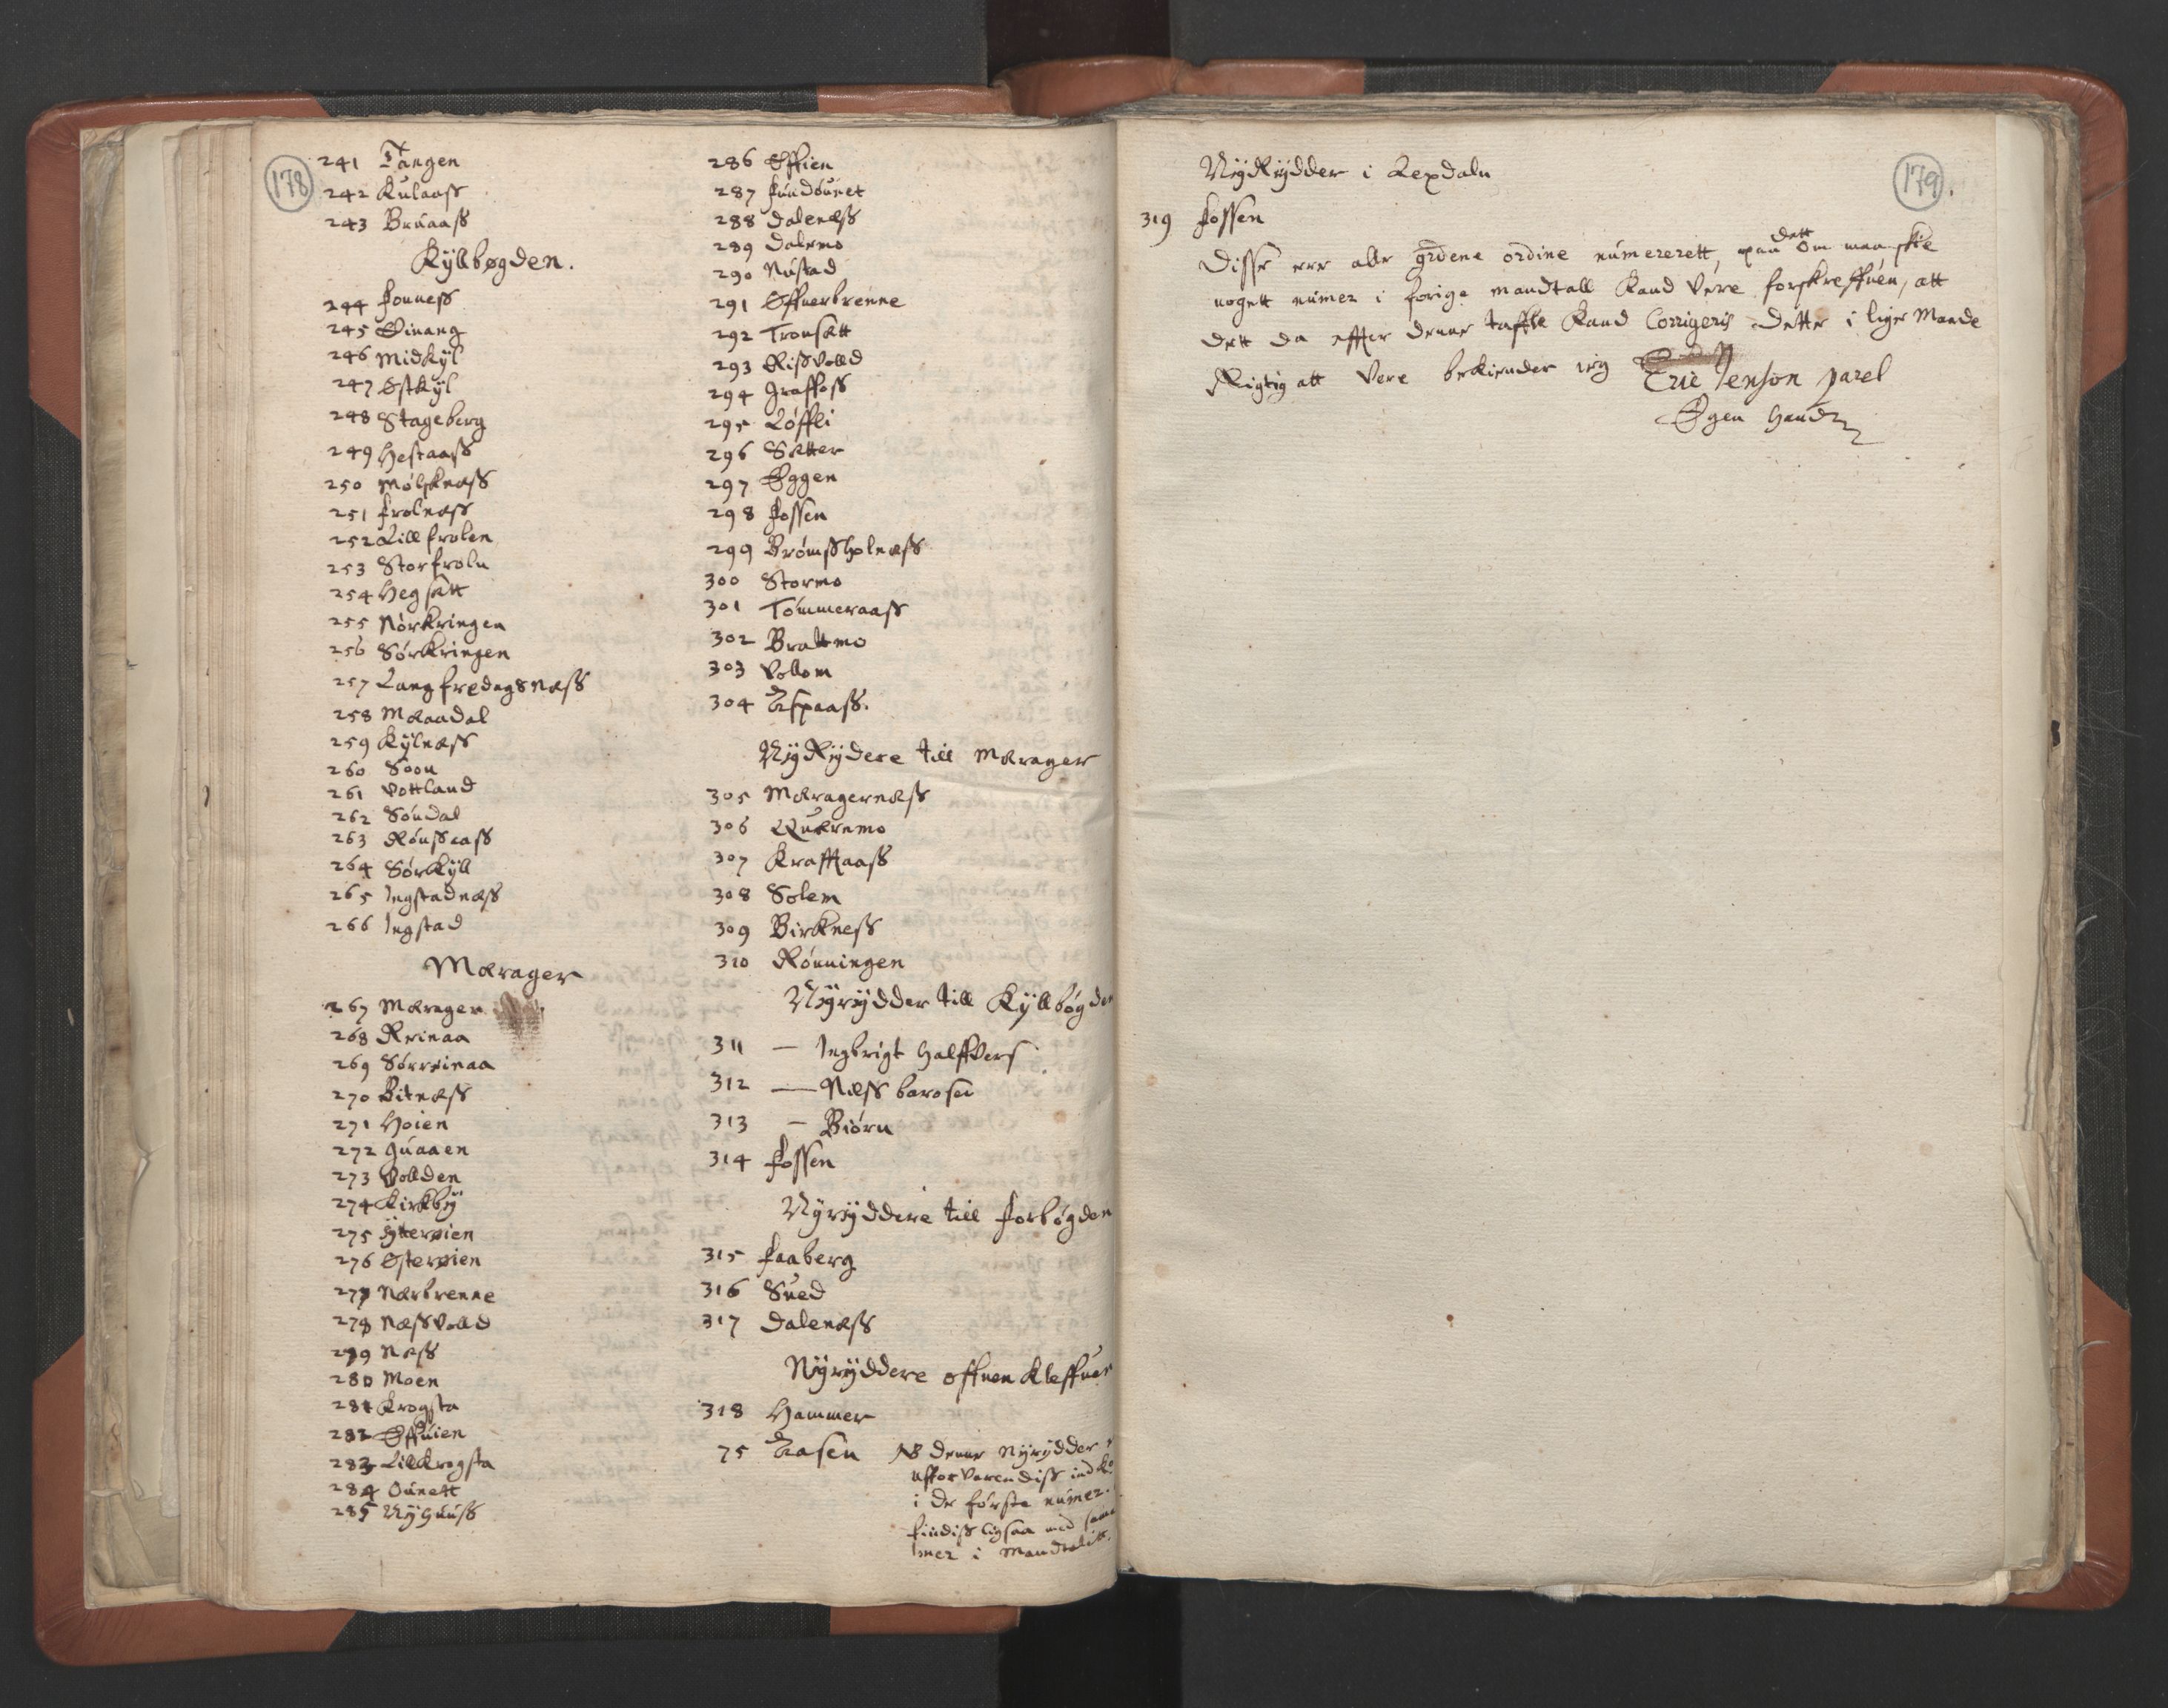 178
241 Tangen
242 Kulaass
243 Bruaass
Kyllbøgden.
244 Fonness
245 Øinang
246 Midkyl
247 Østkyl
248 Stageberg
249 Hestaass
250 Mølsknæss
251 Frolnæss
252 Lill frolen
253 Storfroln
254 Hegsætt
255 Nørkringen
256 Sørkringen
257 Langfredagsnæss
258 Mæaadal
259 Kylnæss
260 Soon
261 Vottland
262 Søndal
263 Rønssaass
264 Sørkyll
265 Ingstadnæss
266 Ingstad
Mærager
267 Mærager
268 Reinaa
269 Sørreinaa
270 Bitnæss
271 Hoien
272 Guaaen
273 Vollden
274 Kirkby
275 Ytterøien
276 Østerøien
277 Nærbrenne
278 Næssvolld
279 Næss
280 Moen
281 Krogsta
282 Effuien
283 Lillkrogsta
284 Øunett
285 Nyhuuss
286 Effien
287 Fundøunet
288 Dalenæss
289 Dalemo
290 Nustad
291 Øffuerbrenne
292 Tronsætt
293 Rissvolld
294 Graffoss
295 Løffli
296 Sætter
297 Eggen
298 Fossen
299 Brømssholnæss
300 Stormo
301 Tømmeraass
302 Brattmo
303 Vollom
304 Aspaass.
Nyrydere till Mærager
305 Mæragernæss
306 Quærnmo
307 Krafftaass
308 Solem
309 Birkness
310 Rønningen
Nyrydder till Kyllbøgden
311 — Ingbrigt Halffvers
312 — Næss barosen
313 — Biørn
314 Fossen
Nyryddere till Forbøgden
315 Faaberg
316 Sued
317 Dalenæss
Nyryddere offuen Kleffuen
318 Hammer
75 Aasen NB denne Nyrydder
uforvarendiss ind
i de første numer.
findiss ligsaa med samme
i Mandtalitt.
179.
Nyrydder i Lexdaln
319 Fossen
Disse ere alle gidene ordine numererett, paa dett Om maa skie
nogett numer i forige mandtall Kand Vere forskreffuen, att
dett da effter denne taffle Kand Corrigeris dette i lige Maade
Rigtig att Vere bekiender ieg Eric Jenson parel
Egen Haand